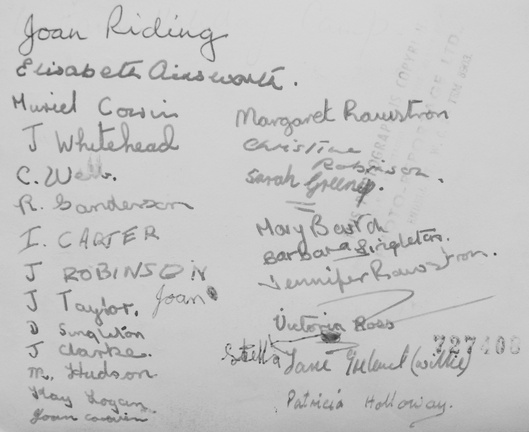 Joan Riding
Elisabeth Ainsworth.
Muriel Cowin
J Whitehead
C. Webb.
R. Sanderson
I. CARTER
J ROBINSON
J Taylor. Joan
D Singleton
J Clarke.
M. Hudson
Kay Logan
Joan Cowin
Margaret Rawstron
Christine
Robinson.
Sarah Greeny.
Mary
Barbara Singleton.
Jennifer Rawstron.
Victoria Ross
Stella Jane (Willie)
727406
Patricia Holloway.